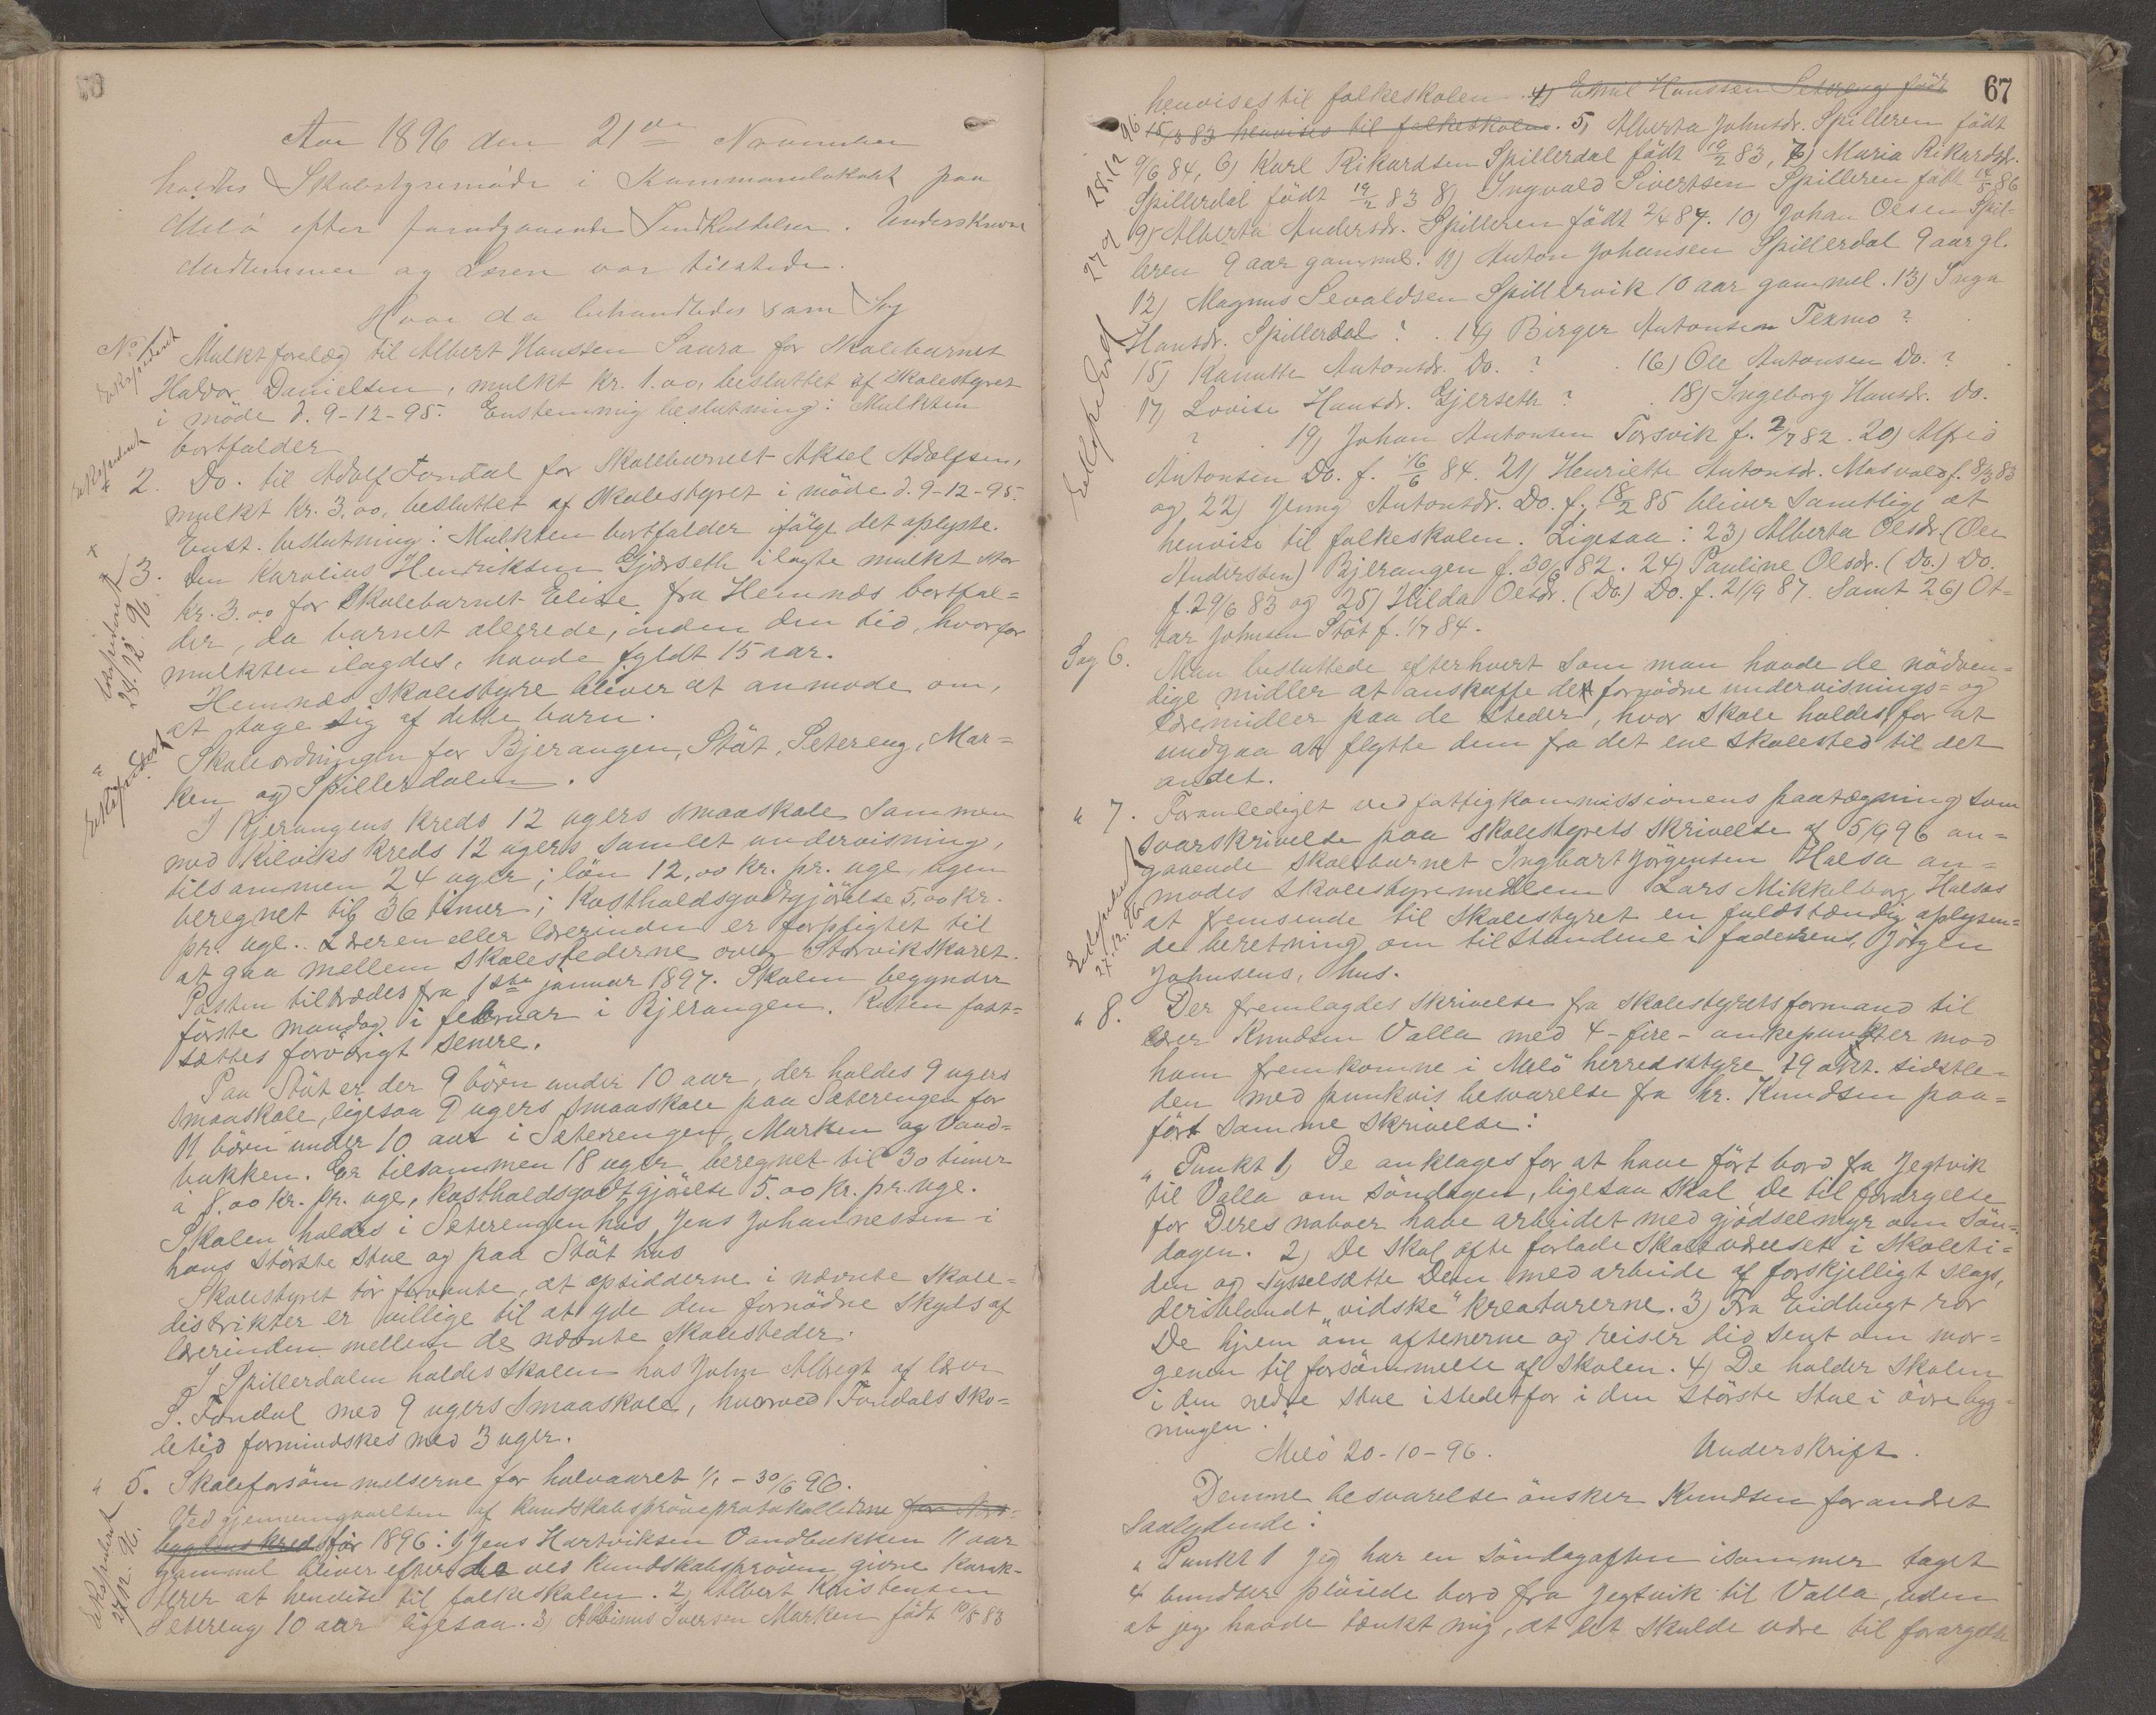 Aar 1896 den 21de November
holdtes Skolestyremöde i Kommunelokalet paa
Melö efter foregaaende Indkaldelse. Underskrevne
Medlemmer og Læreren var tilstede.
Hvor da behandledes som Sag
No. 1. Mulktforelæg til Albert Hanssen Saura for Skolebarnet
Ekspederet
Haldor Danielsen, mulkt kr. 1.00, besluttet af Skolestyret
i möde d. 9-12-95. Enstemmig beslutning: Mulkten
bortfalder
Ekspederet
" 2. Do. til Adolf Fondal for Skolebarnet Aksel Adolfsen,
mulkt Kr. 3.00, besluttet af Skolestyret i möde d. 9-12-95.
Enst. beslutning: Mulkten bortfalder ifölge det oplyste.
" 3. Den Karolius Henriksen Gjerseth ilagte mulkt stor
kr. 3.00 for Skolebarnet Elise fra Hemnes bortfal=
der, da barnet allerede, inden den tid, hvorfor
mulkten ilagdes, havde fyldt 15 aar.
Ekspederet 28.12.96
Hemnes Skolestyre bliver at anmode om,
at tage sig af dette barn.
Skoleordningen for Bjerangen, Stöt, Setereng, Mar=
ken og Spillerdalen.
Ekspederet
I Bjerangens Kreds 12 ugers smaaskole sammen
med Kilviks Kreds 12 ugers samlet undervisning,
tilsammen 24 uger; lön 12.00 kr. pr. uge, ugen
beregnet til 36 timer; Kostholdsgodtgjörelse 5.00 kr.
pr. uge. Læreren eller lærerinden er forpligtet til
at gaa mellem Skolestederne over Storvikskaret.
Posten tiltrædes fra 1ste januar 1897. Skolen begynder
förste mandag i februar i Bjerangen. Ruten fast=
sættes forövrigt senere.
Paa Stöt er der 9 börn under 10 aar, der holdes 9 ugers
Smaaskole, ligesaa 9 ugers Smaaskole paa Sæterengen for
11 börn under 10 aar i Sæterengen, Marken og Vand=
bakken. Er tilsammen 18 uger, beregnet til 30 timer
à 8.00 Kr. pr. uge, Kostholdsgodtgjörelse 5.00 Kr. pr. uge.
Skolen holdes i Sæterengen hos Jens Johannessen i
hans störste Stue og paa Stöt hos
Skolestyret tör forvente, at opsidderne i nævnte Skole=
distrikter er villige til at yde den fornödne Skyds af
lærerinden mellem de nævnte Skolesteder.
I Spillerdalen holdes Skolen hos John Albregt af lærer
S. Fondal med 9 ugers Smaaskole, hvorved Fondals Sko=
letid formindskes med 3 uger.
" 5. Skoleforsömmelserne for halvaaret 1/1 - 30/6 96.
Ved gjennemgaaelsen af Kundskabspröveprotokollerne for
kreds for 1896: 1) Jens Hartviksen Vandbakken 11 aar
gammel bliver efter de ved Kundskabspröven givne Karak=
terer at henvise til folkeskolen. 2) Albert Kristensen
Setereng 10 aar ligesaa. 3) Albinus Iversen Marken födt 10/8 83
Ekspederet 27.12.96.
67
henvises til folkeskolen. 4) Edvil Hanssen Setereng födt
15/3 83 henvises til folkeskolen. 5) Alberta Johnsdr. Spilleren födt
9/6 84, 6) Karl Rikardsen Spillerdal födt 19/2 83, 7) Maria Rikardsdr.
Spillerdal födt 19/2 83 8) Ingvald Sivertsen Spilleren födt 14/8 86
9) Alberta Andersdr. Spilleren födt 2/4 87. 10) Johan Olsen Spil=
leren 9 aar gammel. 11) Anton Johansen Spillerdal 9 aar gl.
12) Magnus Sevaldsen Spillervik 10 aar gammel. 13) Inga
Hansdr. Spillerdal ? . 14) Birger Antonsen Texmo ?
15) Kanutte Antonsdr. Do. ? . 16) Ole Antonsen Do. ? .
17) Lovise Hansdr. Gjerseth ? . 18) Ingeborg Hansdr. Do.
? . 19) Johan Antonsen Torsvik f. 2/7 82. 20) Alfred
Antonsen Do. f. 16/6 84. 21) Henriette Antonsdr. Masvald f. 8/3 83
og 22) Jenny Antonsdr. Do. f. 18/2 85 bliver samtlige at
henvise til folkeskolen. Ligesaa: 23) Alberta Olsdr. (Ole
Andersen) Bjerangen f. 30/6 82. 24) Pauline Olsdr. (Do.) Do.
f. 29/6 83 og 25) Hilda Olsdr. (Do.) Do. f. 21/9 87. Samt 26) Ot=
tar Johnsen Stöt f. 1/7 84.
Ekspederet 28.12 96
Sag 6. Man besluttede efterhvert som man havde de nödven=
dige midler at anskaffe det fornödne undervisnings= og
læremidler paa de steder, hvor Skole holdes, for at
undgaa at flytte dem fra det ene Skolested til det
andet.
" 7. Foranlediget ved fattigkommissionens paategning som
svarskrivelse paa Skolestyrets Skrivelse af 5/9 96 an=
gaaende Skolebarnet Ingbart Jörgensen Halsa an=
modes Skolestyremedlem Lars Mikkelborg Halsos
at fremsende til Skolestyret en fuldstændig oplysen=
de beretning om tilstandene i faderens, Jörgen
Johnsens, hus.
Ekspederet 27.12.96
" 8. Der fremlagdes Skrivelse fra Skolestyrets formand til
lærer Knudsen Valla med 4 - fire - ankepunkter mod
ham fremkomne i Melö herredsstyre 19 Okt. sidstle=
den med punkvis besvarelse fra hr. Knudsen paa=
fört samme Skrivelse:
" Punkt 1) De anklages for at have fört bord fra Jegtvik
til Valla om söndagen, ligesaa skal De til forargelse
for Deres naboer have arbeidet med gjödselmyr om sön=
dagen. 2) De skal ofte forlade Skoleværelset i Skoleti=
den og sysselsætte Dem med arbeide af forskjelligt slags,
deriblandt "vidske" kreaturerne. 3) Fra Eidbugt ror
De hjem om aftenerne og reiser did sent om mor=
genen til forsömmelse af Skolen. 4) De holder Skolen
i den nedre stue istedetfor i den störste Stue i övre byg=
ningen."
Melö 20-10-96. Underskrift.
Denne besvarelse önsker Knudsen forandret
saalydende:
" Punkt 1 Jeg har en söndagaften isommer taget
4 bundter plöiede bord fra Jegtvik til Valla, uden
at jeg havde tænkt mig, at det skulde være til forargelse